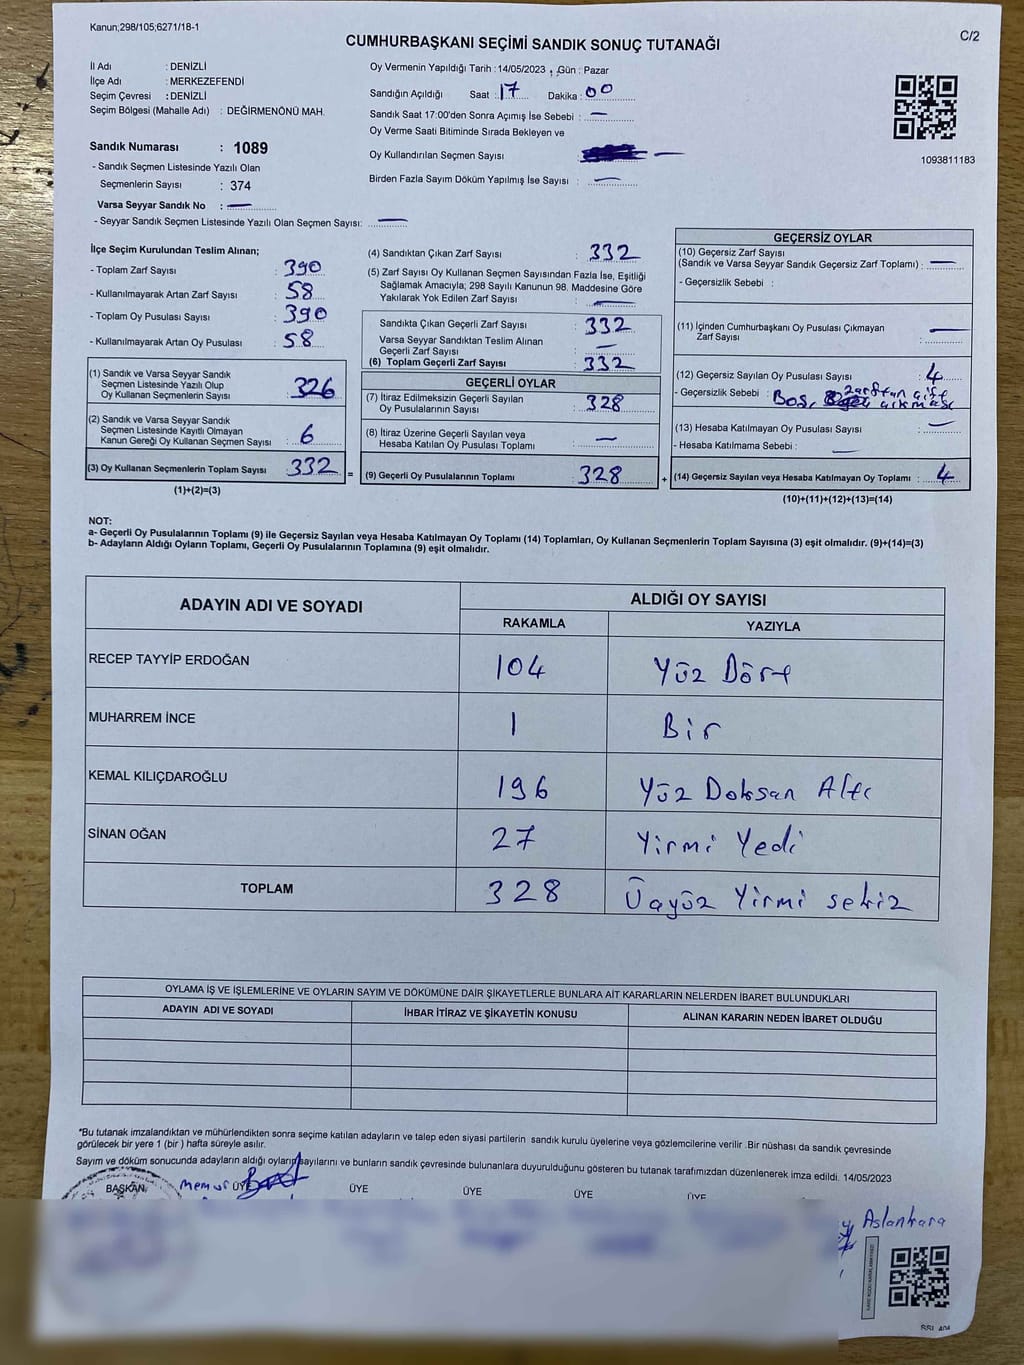 Kanun;298/105;6271/18-1
C/2
CUMHURBAŞKANI SEÇİMİ SANDIK SONUÇ TUTANAĞI
İl Adı : DENİZLİ
İlçe Adı : MERKEZEFENDİ
Seçim Çevresi : DENİZLİ
Seçim Bölgesi (Mahalle Adı) : DEĞİRMENÖNÜ MAH.
Sandık Numarası : 1089
- Sandık Seçmen Listesinde Yazılı Olan
Seçmenlerin Sayısı : 374
Varsa Seyyar Sandık No : —
- Seyyar Sandık Seçmen Listesinde Yazılı Olan Seçmen Sayısı: —
Oy Vermenin Yapıldığı Tarih : 14/05/2023 , Gün : Pazar
Sandığın Açıldığı Saat : 17 Dakika : 00
Sandık Saat 17:00'den Sonra Açımış İse Sebebi : —
Oy Verme Saati Bitiminde Sırada Bekleyen ve
Oy Kullandırılan Seçmen Sayısı : —
Birden Fazla Sayım Döküm Yapılmış İse Sayısı : —
1093811183
İlçe Seçim Kurulundan Teslim Alınan;
- Toplam Zarf Sayısı : 390
- Kullanılmayarak Artan Zarf Sayısı : 58
- Toplam Oy Pusulası Sayısı : 390
- Kullanılmayarak Artan Oy Pusulası : 58
(1) Sandık ve Varsa Seyyar Sandık
Seçmen Listesinde Yazılı Olup
Oy Kullanan Seçmenlerin Sayısı : 326
(2) Sandık ve Varsa Seyyar Sandık
Seçmen Listesinde Kayıtlı Olmayan
Kanun Gereği Oy Kullanan Seçmen Sayısı : 6
(3) Oy Kullanan Seçmenlerin Toplam Sayısı : 332
(1)+(2)=(3)
(4) Sandıktan Çıkan Zarf Sayısı : 332
(5) Zarf Sayısı Oy Kullanan Seçmen Sayısından Fazla İse, Eşitliği
Sağlamak Amacıyla; 298 Sayılı Kanunun 98. Maddesine Göre
Yakılarak Yok Edilen Zarf Sayısı : —
Sandıkta Çıkan Geçerli Zarf Sayısı : 332
Varsa Seyyar Sandıktan Teslim Alınan
Geçerli Zarf Sayısı : —
(6) Toplam Geçerli Zarf Sayısı : 332
GEÇERLİ OYLAR
(7) İtiraz Edilmeksizin Geçerli Sayılan
Oy Pusulalarının Sayısı : 328
(8) İtiraz Üzerine Geçerli Sayılan veya
Hesaba Katılan Oy Pusulası Toplamı : —
= (9) Geçerli Oy Pusulalarının Toplamı : 328
GEÇERSİZ OYLAR
(10) Geçersiz Zarf Sayısı
(Sandık ve Varsa Seyyar Sandık Geçersiz Zarf Toplamı) : —
- Geçersizlik Sebebi :
(11) İçinden Cumhurbaşkanı Oy Pusulası Çıkmayan
Zarf Sayısı : —
(12) Geçersiz Sayılan Oy Pusulası Sayısı : 4
- Geçersizlik Sebebi : Boş, zarftan çift
çıkması
(13) Hesaba Katılmayan Oy Pusulası Sayısı : —
- Hesaba Katılmama Sebebi : —
+ (14) Geçersiz Sayılan veya Hesaba Katılmayan Oy Toplamı : 4
(10)+(11)+(12)+(13)=(14)
NOT:
a- Geçerli Oy Pusulalarının Toplamı (9) ile Geçersiz Sayılan veya Hesaba Katılmayan Oy Toplamı (14) Toplamları, Oy Kullanan Seçmenlerin Toplam Sayısına (3) eşit olmalıdır. (9)+(14)=(3)
b- Adayların Aldığı Oyların Toplamı, Geçerli Oy Pusulalarının Toplamına (9) eşit olmalıdır.
ADAYIN ADI VE SOYADI
ALDIĞI OY SAYISI
RAKAMLA YAZIYLA
RECEP TAYYİP ERDOĞAN 104 Yüz Dört
MUHARREM İNCE 1 Bir
KEMAL KILIÇDAROĞLU 196 Yüz Doksan Altı
SİNAN OĞAN 27 Yirmi Yedi
TOPLAM 328 Üçyüz Yirmi sekiz
OYLAMA İŞ VE İŞLEMLERİNE VE OYLARIN SAYIM VE DÖKÜMÜNE DAİR ŞİKAYETLERLE BUNLARA AİT KARARLARIN NELERDEN İBARET BULUNDUKLARI
ADAYIN ADI VE SOYADI İHBAR İTİRAZ VE ŞİKAYETİN KONUSU ALINAN KARARIN NEDEN İBARET OLDUĞU
*Bu tutanak imzalandıktan ve mühürlendikten sonra seçime katılan adayların ve talep eden siyasi partilerin sandık kurulu üyelerine veya gözlemcilerine verilir .Bir nüshası da sandık çevresinde
görülecek bir yere 1 (bir ) hafta süreyle asılır.
Sayım ve döküm sonucunda adayların aldığı oyların sayılarını ve bunların sandık çevresinde bulunanlara duyurulduğunu gösteren bu tutanak tarafımızdan düzenlenerek imza edildi. 14/05/2023
BAŞKAN memur ÜYE ÜYE ÜYE ÜYE ÜYE
Aslankara